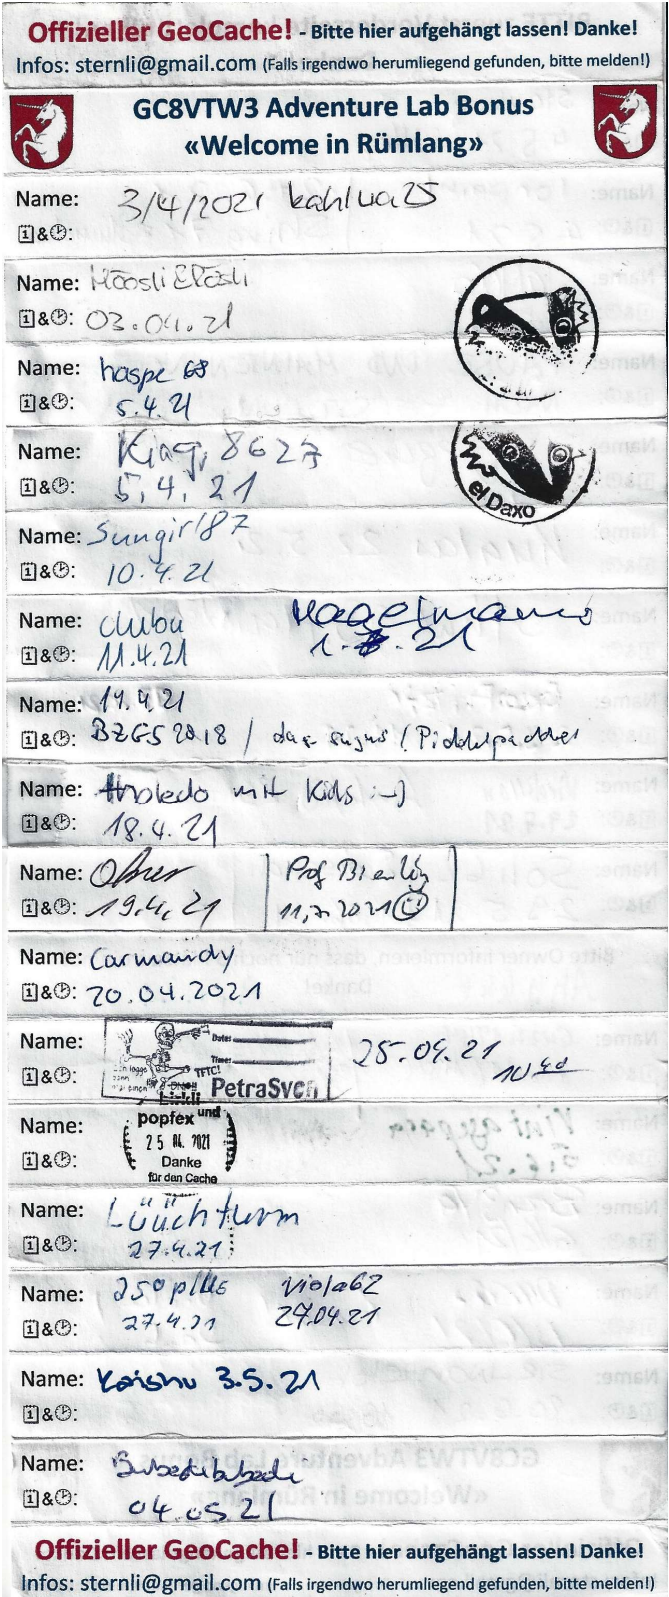 Offizieller GeoCache! - Bitte hier aufgehängt lassen! Danke!
Infos: sternli@gmail.com (Falls irgendwo herumliegend gefunden, bitte melden!)
GC8VTW3 Adventure Lab Bonus
«Welcome in Rümlang»
Name: 3/4/2021 kahlua25
&:
Name:
&: 03.04.21
Name: haspe 68
&: 5.4.21
Name: 8627
&: 5.4.21
el Daxo
Name: Sungirl87
&: 10.4.21
Name: chubu Magelmanns
&: 11.4.21 1. .21
Name: 14.4.21
&: BZGS2018 / das /
Name: mit Kids :-)
&: 18.4.21
Name: Prof
&: 19.4.21 11.7.2021
Name: Carmandy
&: 20.04.2021
Name: Date: 25.04.21
Time:
TFTC!
&: PetraSven
Name: popfex und
25 04. 2021
&: Danke
für den Cache
Name: Lüüchturm
&: 27.4.21
Name: 250plus viola62
&: 27.4.21 27.04.21
Name: Kaishu 3.5.21
&:
Name:
&: 04.05.21
Offizieller GeoCache! - Bitte hier aufgehängt lassen! Danke!
Infos: sternli@gmail.com (Falls irgendwo herumliegend gefunden, bitte melden!)